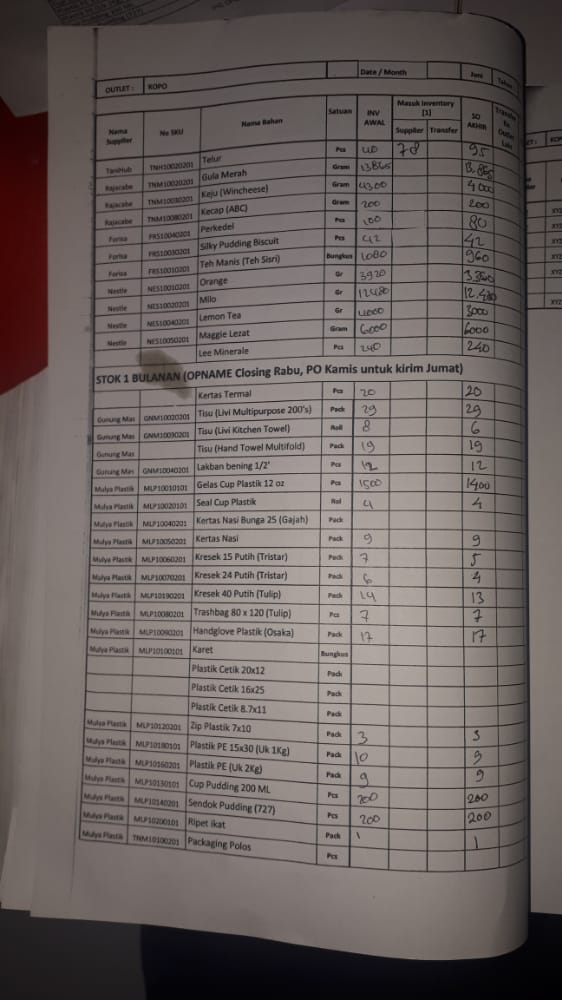 OUTLET : KOPO Date / Month Juni
Nama Supplier No SKU Nama Bahan Satuan INV AWAL Masuk Inventory [1] Supplier Transfer SO AKHIR Transfer Ke Outlet Lain
TaniHub TNH10020201 Telur Pcs 40 78 95
Rajacabe TNM10020201 Gula Merah Gram 13.865 13.865
Rajacabe TNM10030201 Keju (Wincheese) Gram 4300 4000
Rajacabe TNM10080201 Kecap (ABC) Gram 200 200
Forisa FRS10040201 Perkedel Pcs 100 80
Forisa FRS10030201 Silky Pudding Biscuit Pcs 42 42
Forisa FRS10010201 Teh Manis (Teh Sisri) Bungkus 1080 960
Nestle NES10010201 Orange Gr 3920 3.360
Nestle NES10020201 Milo Gr 12480 12.480
Nestle NES10040201 Lemon Tea Gr 4000 3000
Nestle NES10050201 Maggie Lezat Gram 6000 6000
Lee Minerale Pcs 240 240
STOK 1 BULANAN (OPNAME Closing Rabu, PO Kamis untuk kirim Jumat)
Kertas Termal Pcs 20 20
Gunung Mas GNM10020201 Tisu (Livi Multipurpose 200's) Pack 29 29
Gunung Mas GNM10030201 Tisu (Livi Kitchen Towel) Roll 8 6
Gunung Mas Tisu (Hand Towel Multifold) Pack 19 19
Gunung Mas GNM10040201 Lakban bening 1/2' Pcs 12 12
Mulya Plastik MLP10010101 Gelas Cup Plastik 12 oz Pcs 1500 1400
Mulya Plastik MLP10020101 Seal Cup Plastik Rol 4 4
Mulya Plastik MLP10040201 Kertas Nasi Bunga 25 (Gajah) Pack
Mulya Plastik MLP10050201 Kertas Nasi Pack 9 9
Mulya Plastik MLP10060201 Kresek 15 Putih (Tristar) Pack 7 5
Mulya Plastik MLP10070201 Kresek 24 Putih (Tristar) Pack 6 4
Mulya Plastik MLP10190201 Kresek 40 Putih (Tulip) Pack 14 13
Mulya Plastik MLP10080201 Trashbag 80 x 120 (Tulip) Pcs 7 7
Mulya Plastik MLP10090201 Handglove Plastik (Osaka) Pack 17 17
Mulya Plastik MLP10100101 Karet Bungkus
Plastik Cetik 20x12 Pack
Plastik Cetik 16x25 Pack
Plastik Cetik 8.7x11 Pack
Mulya Plastik MLP10120201 Zip Plastik 7x10 Pack 3 3
Mulya Plastik MLP10180101 Plastik PE 15x30 (Uk 1Kg) Pack 10 9
Mulya Plastik MLP10160201 Plastik PE (Uk 2Kg) Pack 9 9
Mulya Plastik MLP10130101 Cup Pudding 200 ML Pcs 200 200
Mulya Plastik MLP10140201 Sendok Pudding (727) Pcs 200 200
Mulya Plastik MLP10200101 Ripet ikat Pack 1 1
Mulya Plastik TNM10100201 Packaging Polos Pcs